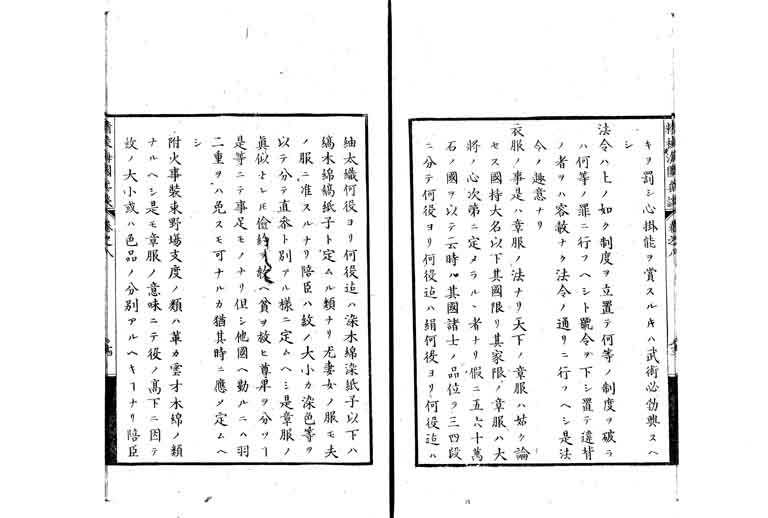 キヲ罰シ心掛能ヲ賞スルキハ武術必勃興スヘ
シ
法令ハ上ノ如ク制度ヲ立置テ何等ノ制度ヲ破ラ
ハ何等ノ罪ニ行フヘシト號令ヲ下シ置テ違背
ノ者ヲハ容赦ナク法令ノ通リニ行フヘシ是法
令ノ趣意ナリ
衣服ノ事是ハ章服ノ法ナリ天下ノ章服ハ姑ク論
セス國持大名以下其國限リ其家限ノ章服ハ大
將ノ心次第ニ定メラルヽ者ナリ假ニ五六十萬
石ノ國ヲ以テ云時ハ其國諸士ノ品位ヲ三四段
ニ分テ何役ヨリ何役迠ハ絹何役ヨリ何役迠ハ
紬太織何役ヨリ何役迠ハ染木綿染紙子以下ハ
縞木綿縞紙子ト定ムル類ナリ尤妻女ノ服モ夫
ノ服ニ准スルナリ陪臣ハ紋ノ大小カ染色等ヲ
以テ分テ直參ト別アル樣ニ定ムヘシ是章服ノ
眞似ヲシレ𪜈儉約ヲ教ヘ貧ヲ救ヒ尊卑ヲ分ツヿ
是等ニテ事足モノナリ但シ他國ヘ勤ルニハ羽
二重ヲハ免スモ可ナルカ猶其時ニ應メ定ムヘ
シ
附火事裝束野塲支度ノ類ハ革カ雲才木綿ノ類
ナルヘシ是モ章服ノ意味ニテ役ノ高下ニ因テ
紋ノ大小或ハ色品ノ分別アルヘキヿナリ陪臣
精校海國兵談
卷之八